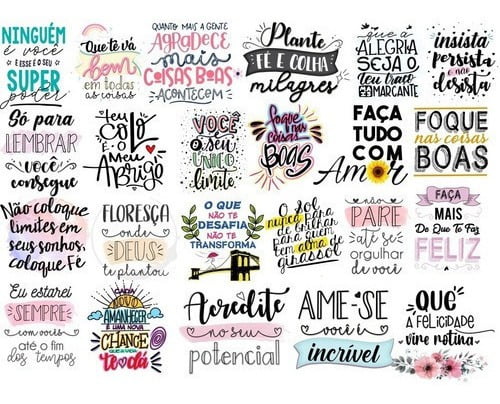 NINGUÉM
é VOCÊ
E ESSE É O SEU
SUPER
poder
Que te vá
bem
em todas
as coisas
QUANTO MAIS A GENTE
AGRADECE
MAIS
COISAS BOAS
ACONTECEM
Plante
FÉ E COLHA
milagres
que a
ALEGRIA
SEJA O
teu traço
MARCANTE
insista
persista
e não
desista
Só para
LEMBRAR
você
consegue
teu
COLO
É O
MEU
ABRIGO
VOCÊ
é seu
ÚNICO
limite
foque
nas
coisas
BOAS
FAÇA
TUDO
COM
Amor
FOQUE
nas coisas
BOAS
Não coloque
limites em
seus sonhos,
coloque Fé
FLORESÇA
onde
DEUS
te plantou
O QUE
NÃO TE
DESAFIA
NÃO TE
TRANSFORMA
O Sol
nunca para
de brilhar
para quem
tem alma de
girassol
não
PARE
até se
orgulhar
de você
FAÇA
MAIS
Do Que Te Faz
FELIZ
Eu estarei
SEMPRE
com vocês
até o fim
dos tempos
CADA
NOVO
AMANHECER
É UMA NOVA
CHANCE
QUE A VIDA
te dá
Acredite
no seu
potencial
AME-SE
você é
incrível
QUE
A FELICIDADE
vire rotina